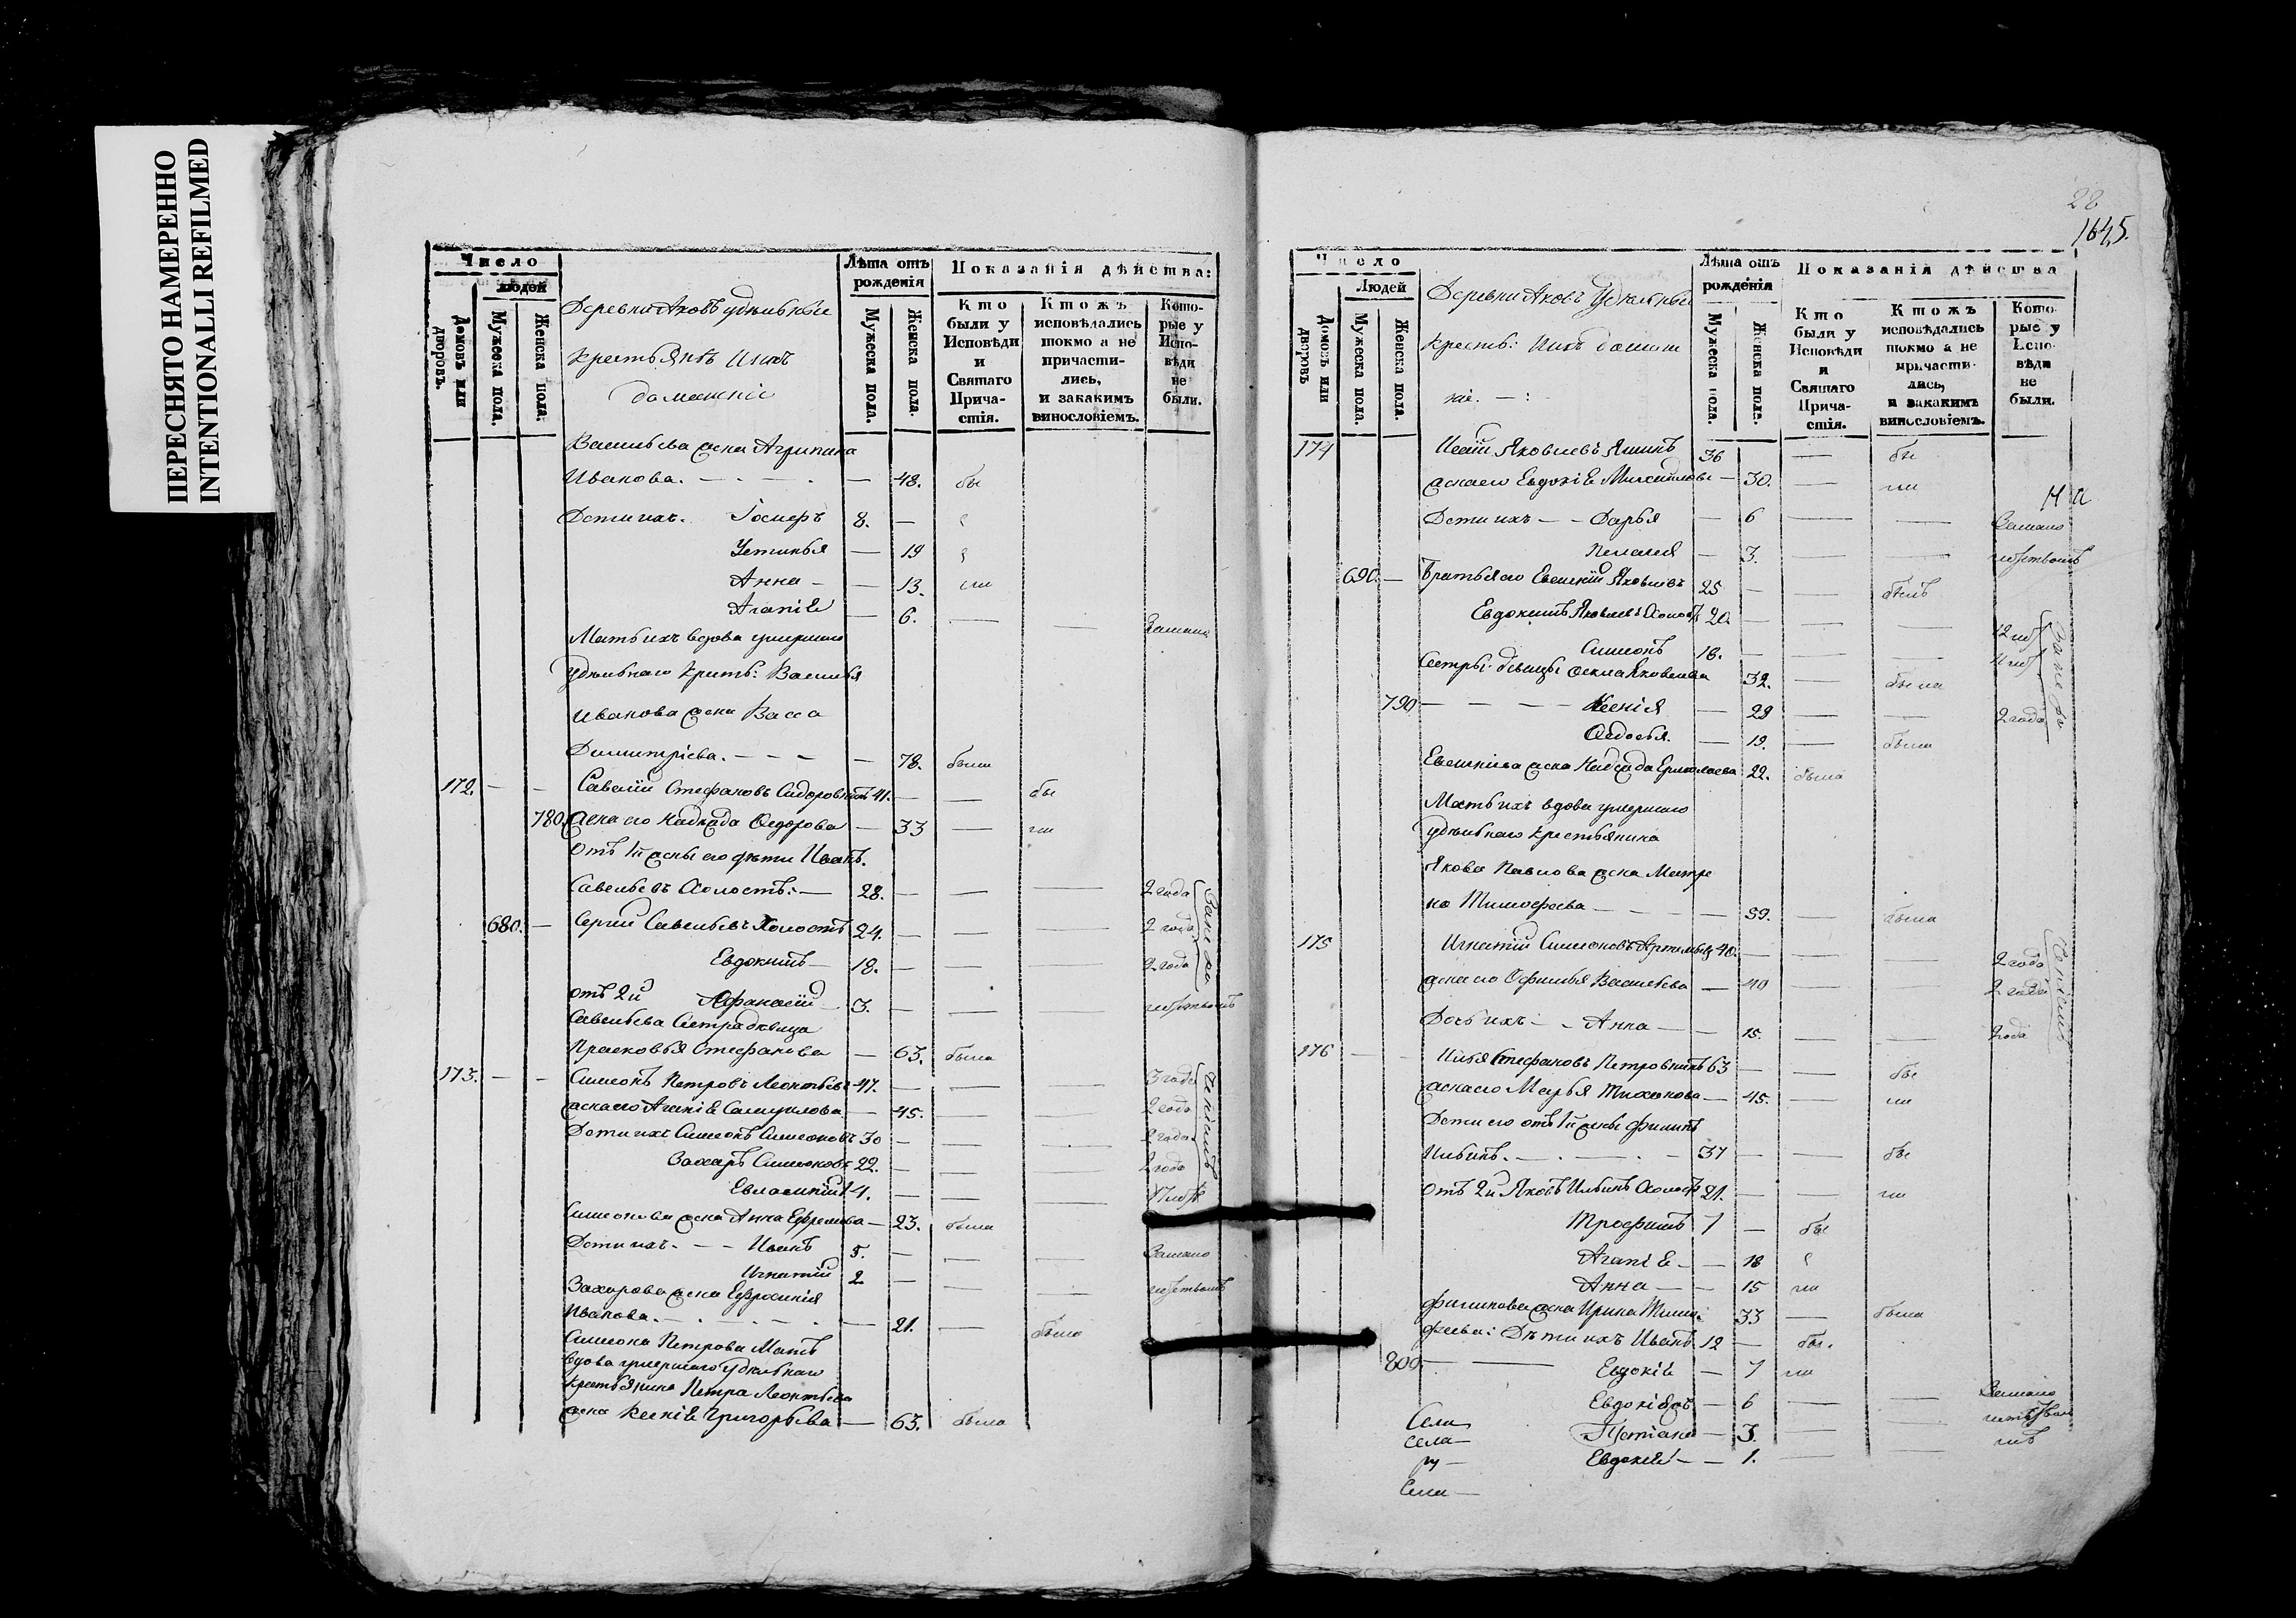 ПЕРЕСНЯТО НАМЕРЕННО
INTENTIONALLI REFILMED
Число
людей
Домовъ или дворовъ.
Мужеска пола.
Женска пола.
Деревни Яковъ удѣльные
крестьянѣ и ихъ
домашніе
Лѣта отъ рожденія
Мужеска пола.
Женска пола.
Показанія дѣйства:
Кто были у Исповѣди и Святаго Причастія.
Ктожъ исповѣдались токмо а не причастились, и закакимъ винословіемъ.
Которые у Исповѣди не были.
Васильева жена Агрипина
Иванова. — 48. бы
Дети ихъ. Іосифъ 8. —
Устинья — 19
Анна — 13. ли
Агапія — 6. — — Замало
Мать ихъ вдова умершаго
удѣльнаго кресть: Василья
Иванова жена Васса
Димитріева. — — — 78. была
172. — — Савелій Стефановъ Сидоровъ 41. — — бы
780. жена его Надежда Федорова — 33 — ли
Отъ 1й жены его дѣти Иванъ
Савельевъ Холостъ. — 28. — — — 2 года
680. — Сергій Савельевъ Холостъ 24. — — — 2 года
Евдокимъ — 18. — — — 2 года
отъ 2й Афанасій 3. — — малолѣтствомъ
Савельева Сестра девица
Прасковья Стефанова — 63. была
173. — — Симеонъ Петровъ Леонтьевъ 47. — — — 3 года
жена его Агапія Самуилова — 45. — — 2 года
Дети ихъ Симеонъ Симеоновъ 30 — — — 2 года
Захаръ Симеоновъ 22. — — — 2 года
Евлампій 14. — — —
Симеонова жена Анна Ефремова — 23. была
Дети ихъ. — — Иванъ 5. — — — Замало
Игнатій 2 — — —
Захарова жена Ефросинія
Иванова. — 21. — была
Симеона Петрова Мать
вдова умершаго удѣльнаго
крестьянина Петра Леонтьева
жена Ксенія Григорьева — 63. была
28
1645.
Число
Людей
Домовъ или дворовъ
Мужеска пола.
Женска пола.
Деревни Яковъ Удѣльные
кресть: и ихъ домаш
ніе. — :
Лѣта отъ рожденія
Мужеска пола.
Женска пола.
Показанія дѣйства
Кто были у Исповѣди и Святаго Причастія.
Ктожъ исповѣдались токмо а не причастились, и закакимъ винословіемъ.
Которые у Исповѣди не были.
174 Исаій Яковлевъ Яшинъ 36 — бы
жена его Евдокія Михайлова — 30. — ли
Дети ихъ — — Дарья — 6 — — Замало
Пелагея — 3. — —
690. — Братья его Евсевій Яковлевъ 25 — — былъ
Евдокимъ Яковлевъ Холостъ 20. — — —
Симеонъ 18. — — —
Сестры девицы Фекла Яковлева 32. — была
790 — — — — Ксенія — 29 — — 2 года
Федосья. — 19. — была
Жена Надежда Ермолаева 22. была
Мать ихъ вдова умершаго
удѣльнаго крестьянина
Якова Павлова жена Матре
на Тимофеева — — — — 59. — была
175 Игнатій Симеоновъ 40. — — — 2 года
жена его Офимья Васильева — 40 — — 2 года
Дочь ихъ — — Анна — — 15. — — 2 года
176 — — Илья Стефановъ Петровъ 63 — — бы
жена его Марья Тихонова — 45. — ли
Дети его отъ 1й жены Филипъ
Ильинъ. — 37 — — бы
Отъ 2й Яковъ Ильинъ Холостъ 21. — — ли
Трофимъ 7 — бы
Агапія — — 18
Анна — — 15 ли
Филипова жена Ирина Тимо: 33 — была
феева: Дѣти ихъ Иванъ 12 — бы.
800 — — Евдокія — 7 ли
Евдокія — 6 — — Замало
Тетіана — 3. —
Евдокія — — 1. — —